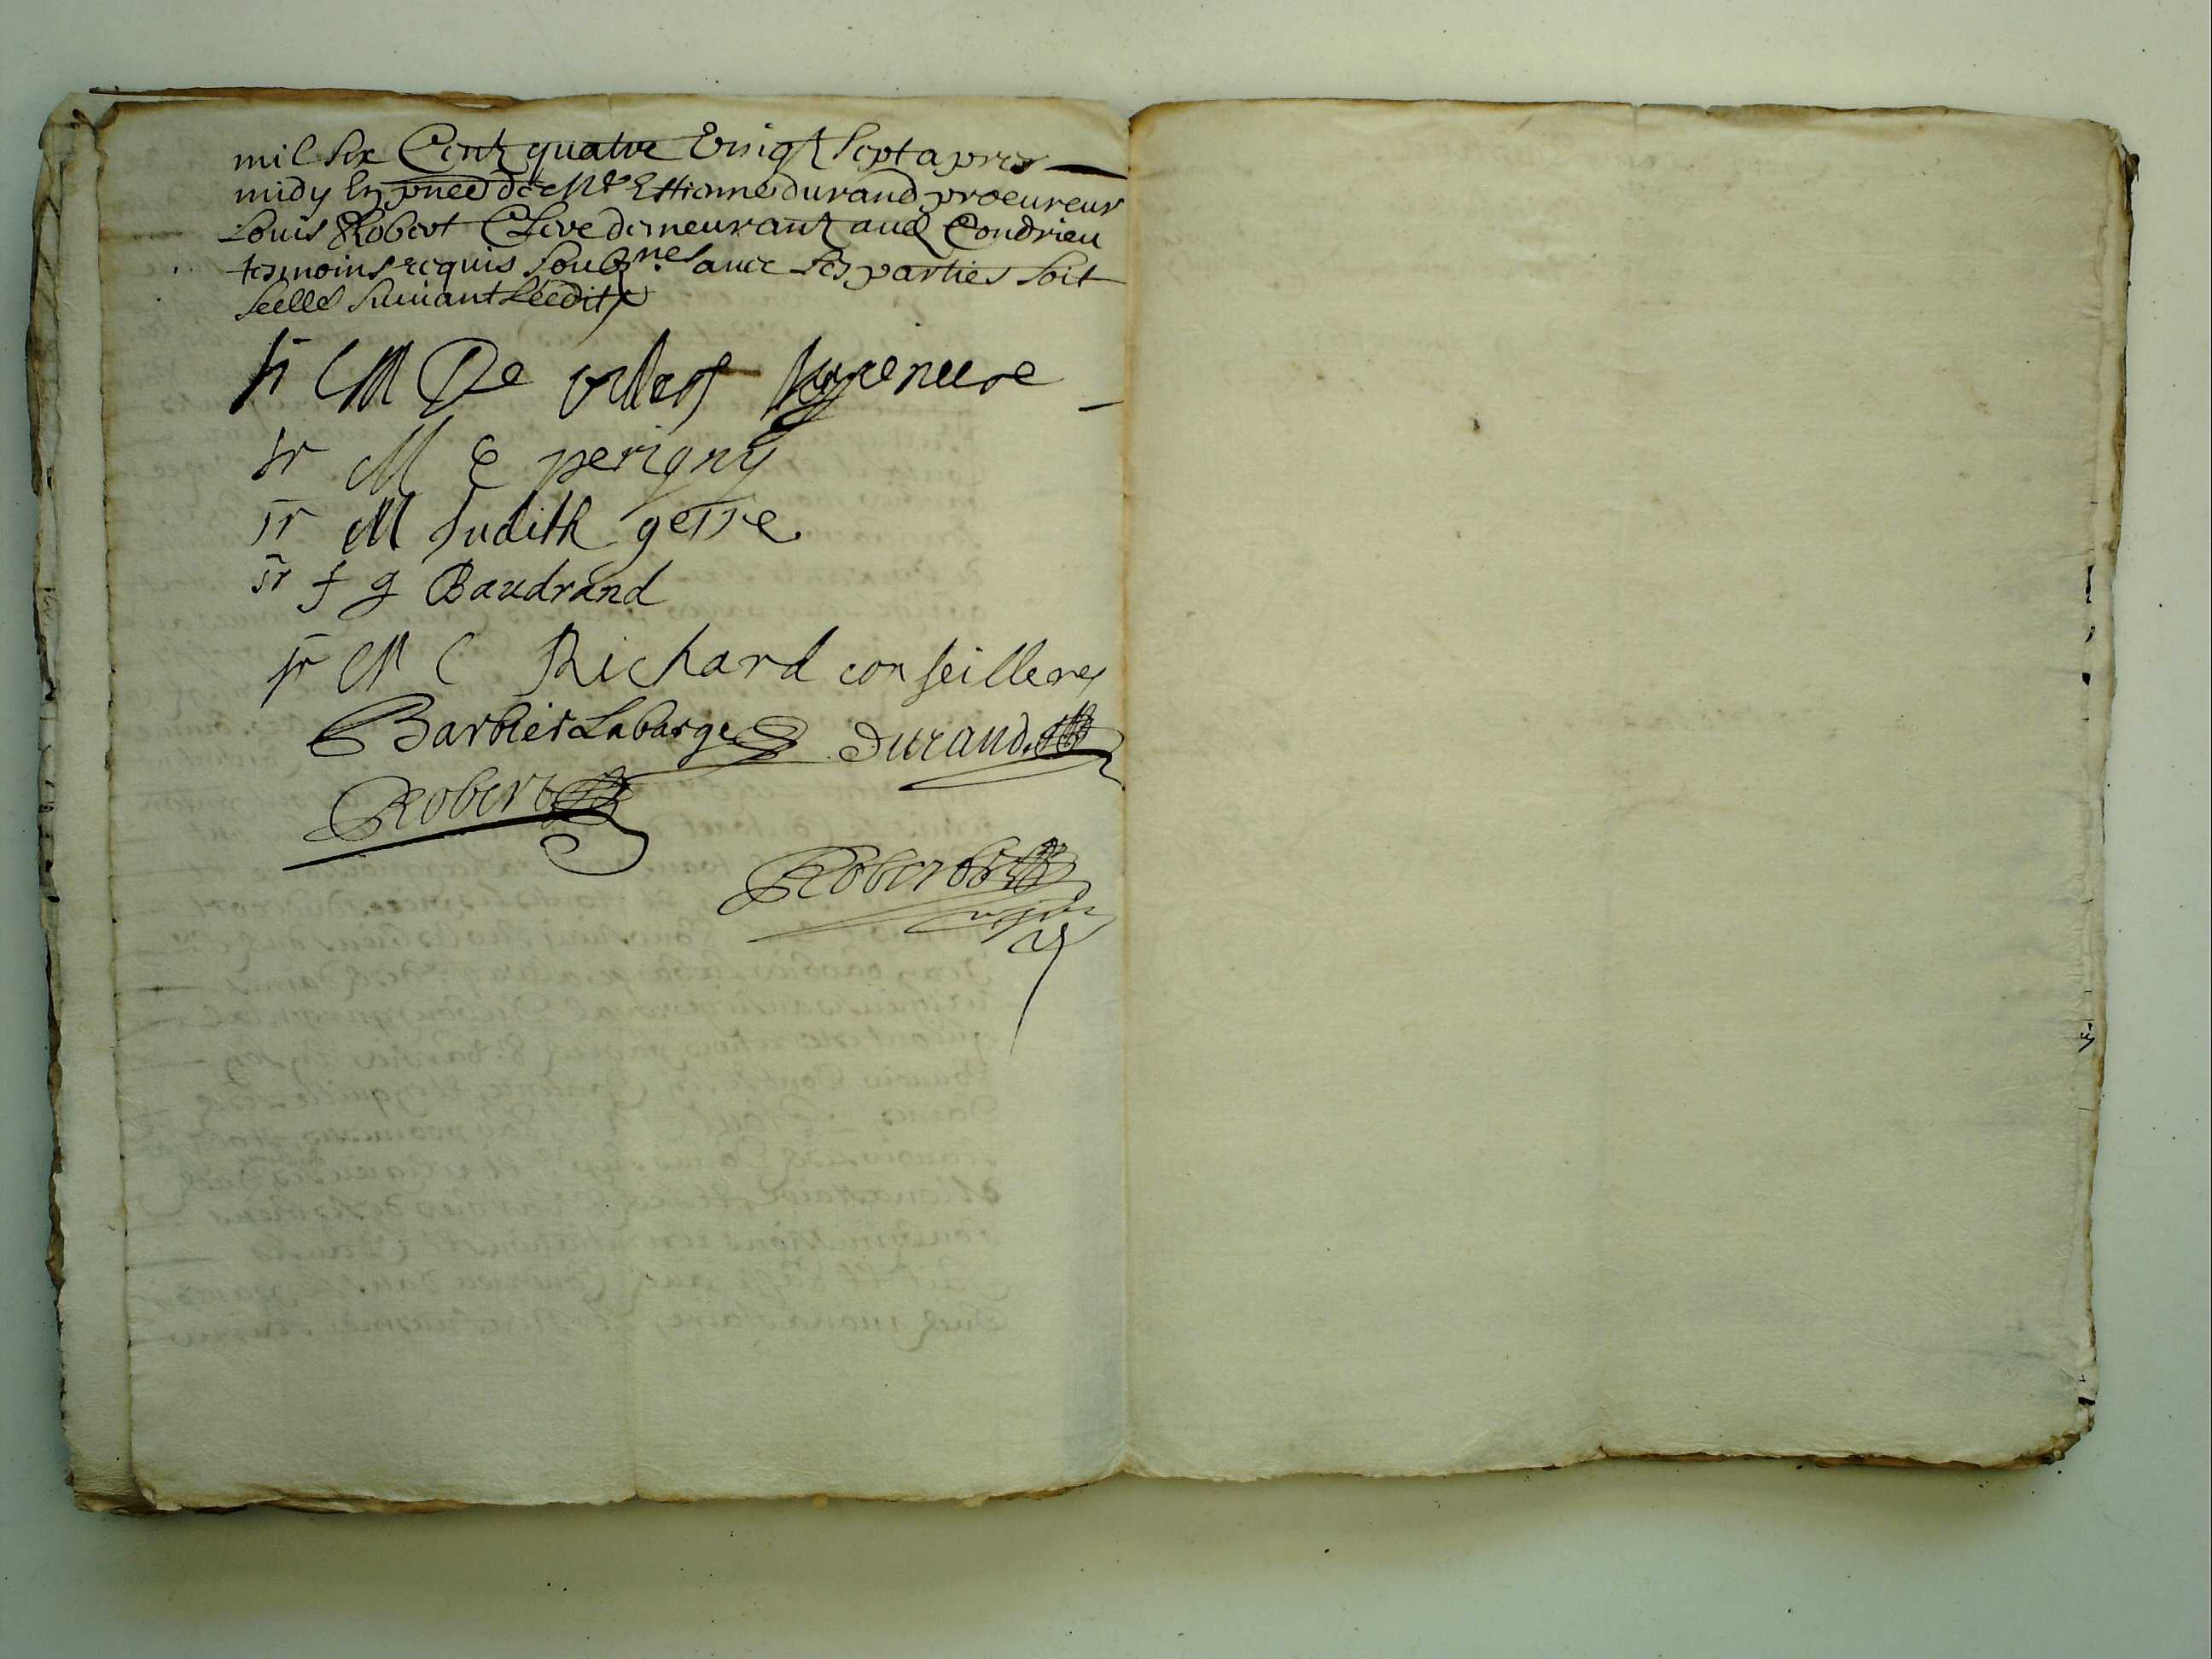 mil six Centz quatre vingt sept apres
midy en pnce de Me Estienne durand procureur
Louis Robert Clerc demeurantz aud Condrieu
tesmoins requis soubznes auec les parties soit
scellé suiuant l'eedit
sr C M De superieure
sr M E perigny
sr M Judith gesse
sr f g Baudrand
sr M C Richard conseillere
Barbier Labarge Durand
Robert
Robert